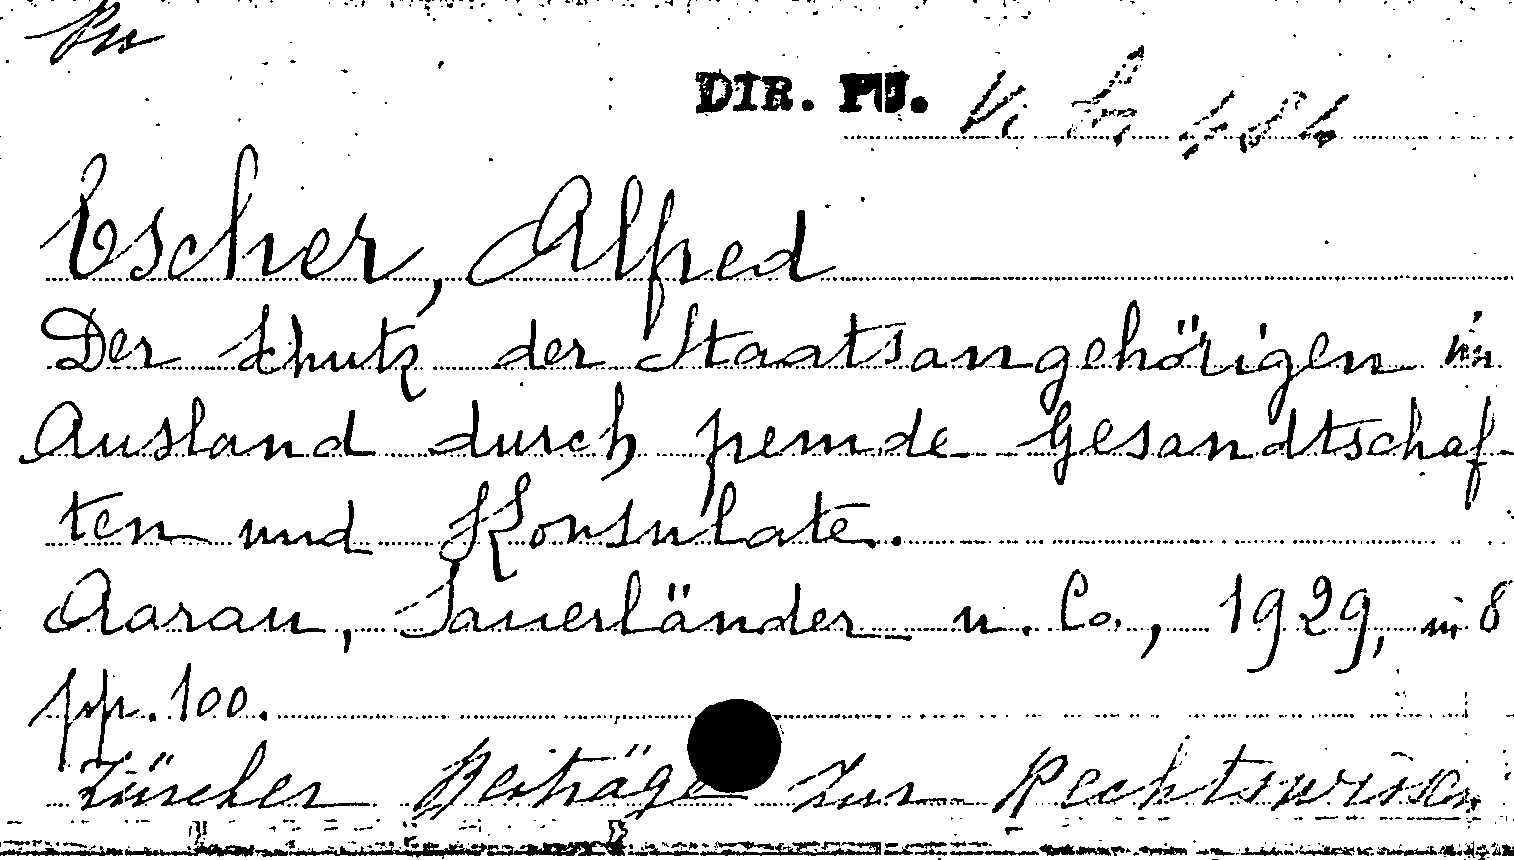 Pu
DIR. PU.
Escher, Alfred
Der Schutz der Staatsangehörigen im
Ausland durch fremde Gesandtschaf-
ten und Konsulate.
Aarau, Sauerländer u. Co., 1929, in 8
pp. 100.
Zürcher Beiträge zur Rechtswissen